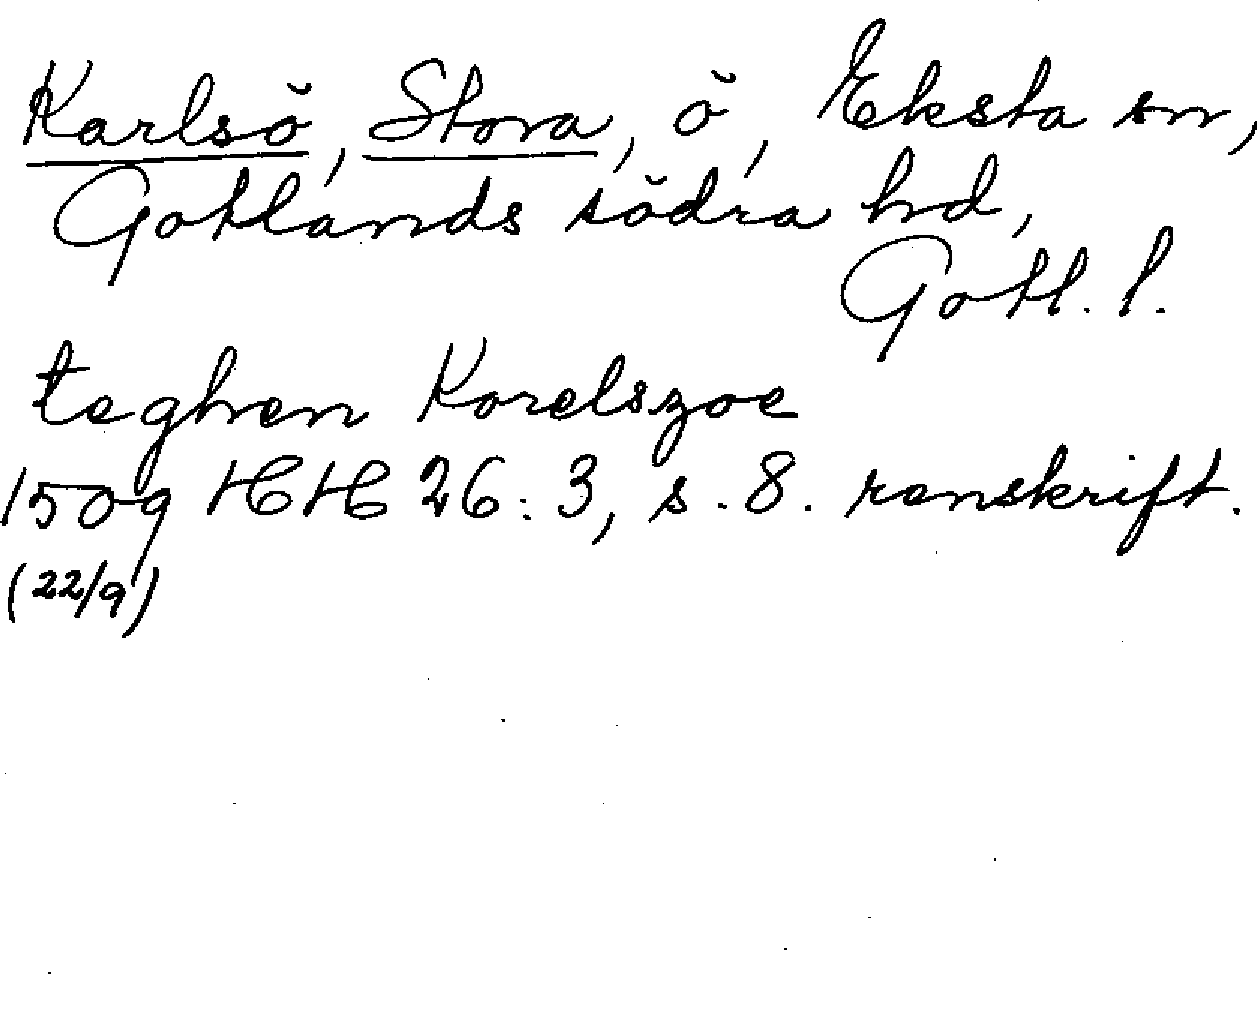 Karlsö, Stora, ö, Eksta sn,
Gotlands södra hd,
Gotl. l.
teghen Korelszoe
1509 HH 26:3, s. 8. renskrift.
(22/9)